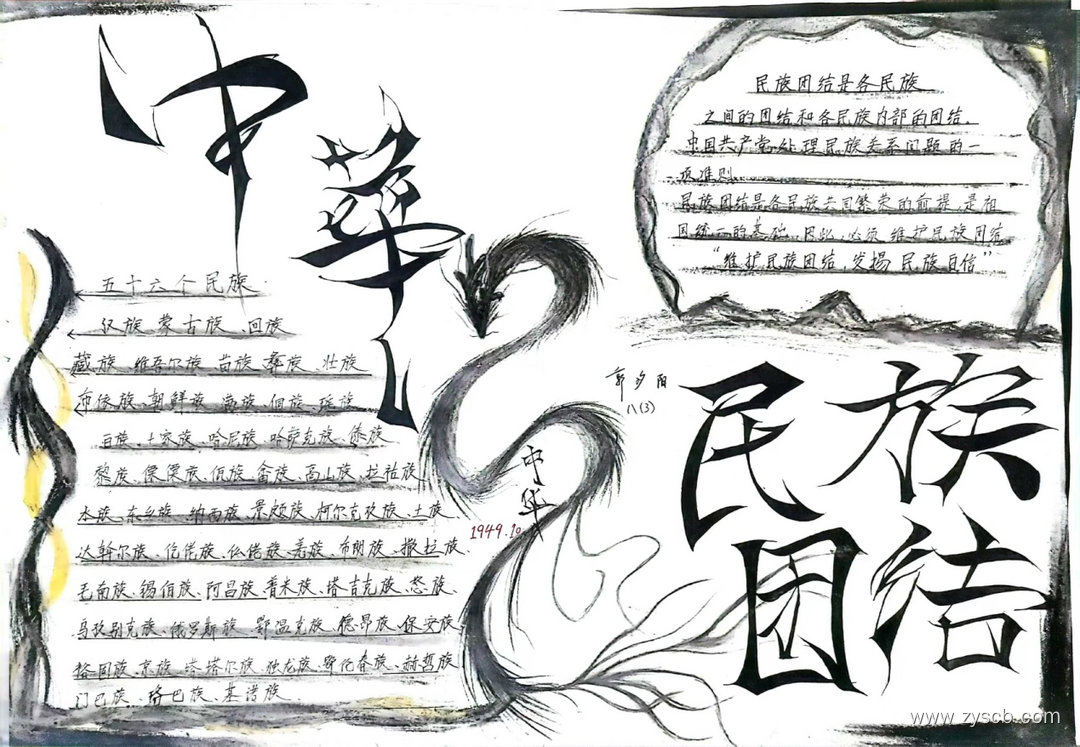 中華
五十六个民族
汉族、蒙古族、回族
藏族、维吾尔族、苗族、彝族、壮族
布依族、朝鲜族、满族、侗族、瑶族
白族、土家族、哈尼族、哈萨克族、傣族
黎族、傈僳族、佤族、畲族、高山族、拉祜族
水族、东乡族、纳西族、景颇族、柯尔克孜族、土族
达斡尔族、仫佬族、仡佬族、羌族、布朗族、撒拉族、
毛南族、锡伯族、阿昌族、普米族、塔吉克族、怒族、
乌孜别克族、俄罗斯族、鄂温克族、德昂族、保安族
裕固族、京族、塔塔尔族、独龙族、鄂伦春族、赫哲族
门巴族、珞巴族、基诺族
中华
1949.10
民族团结是各民族
之间的团结和各民族内部的团结.
中国共产党处理民族关系问题的一
项准则
民族团结是各民族共同繁荣的前提,是祖
国统一的基础,因此,必须维护民族团结
“维护民族团结,发扬民族自信”
郭夕阳
八(3)
民族
团结
www.zyscb.com